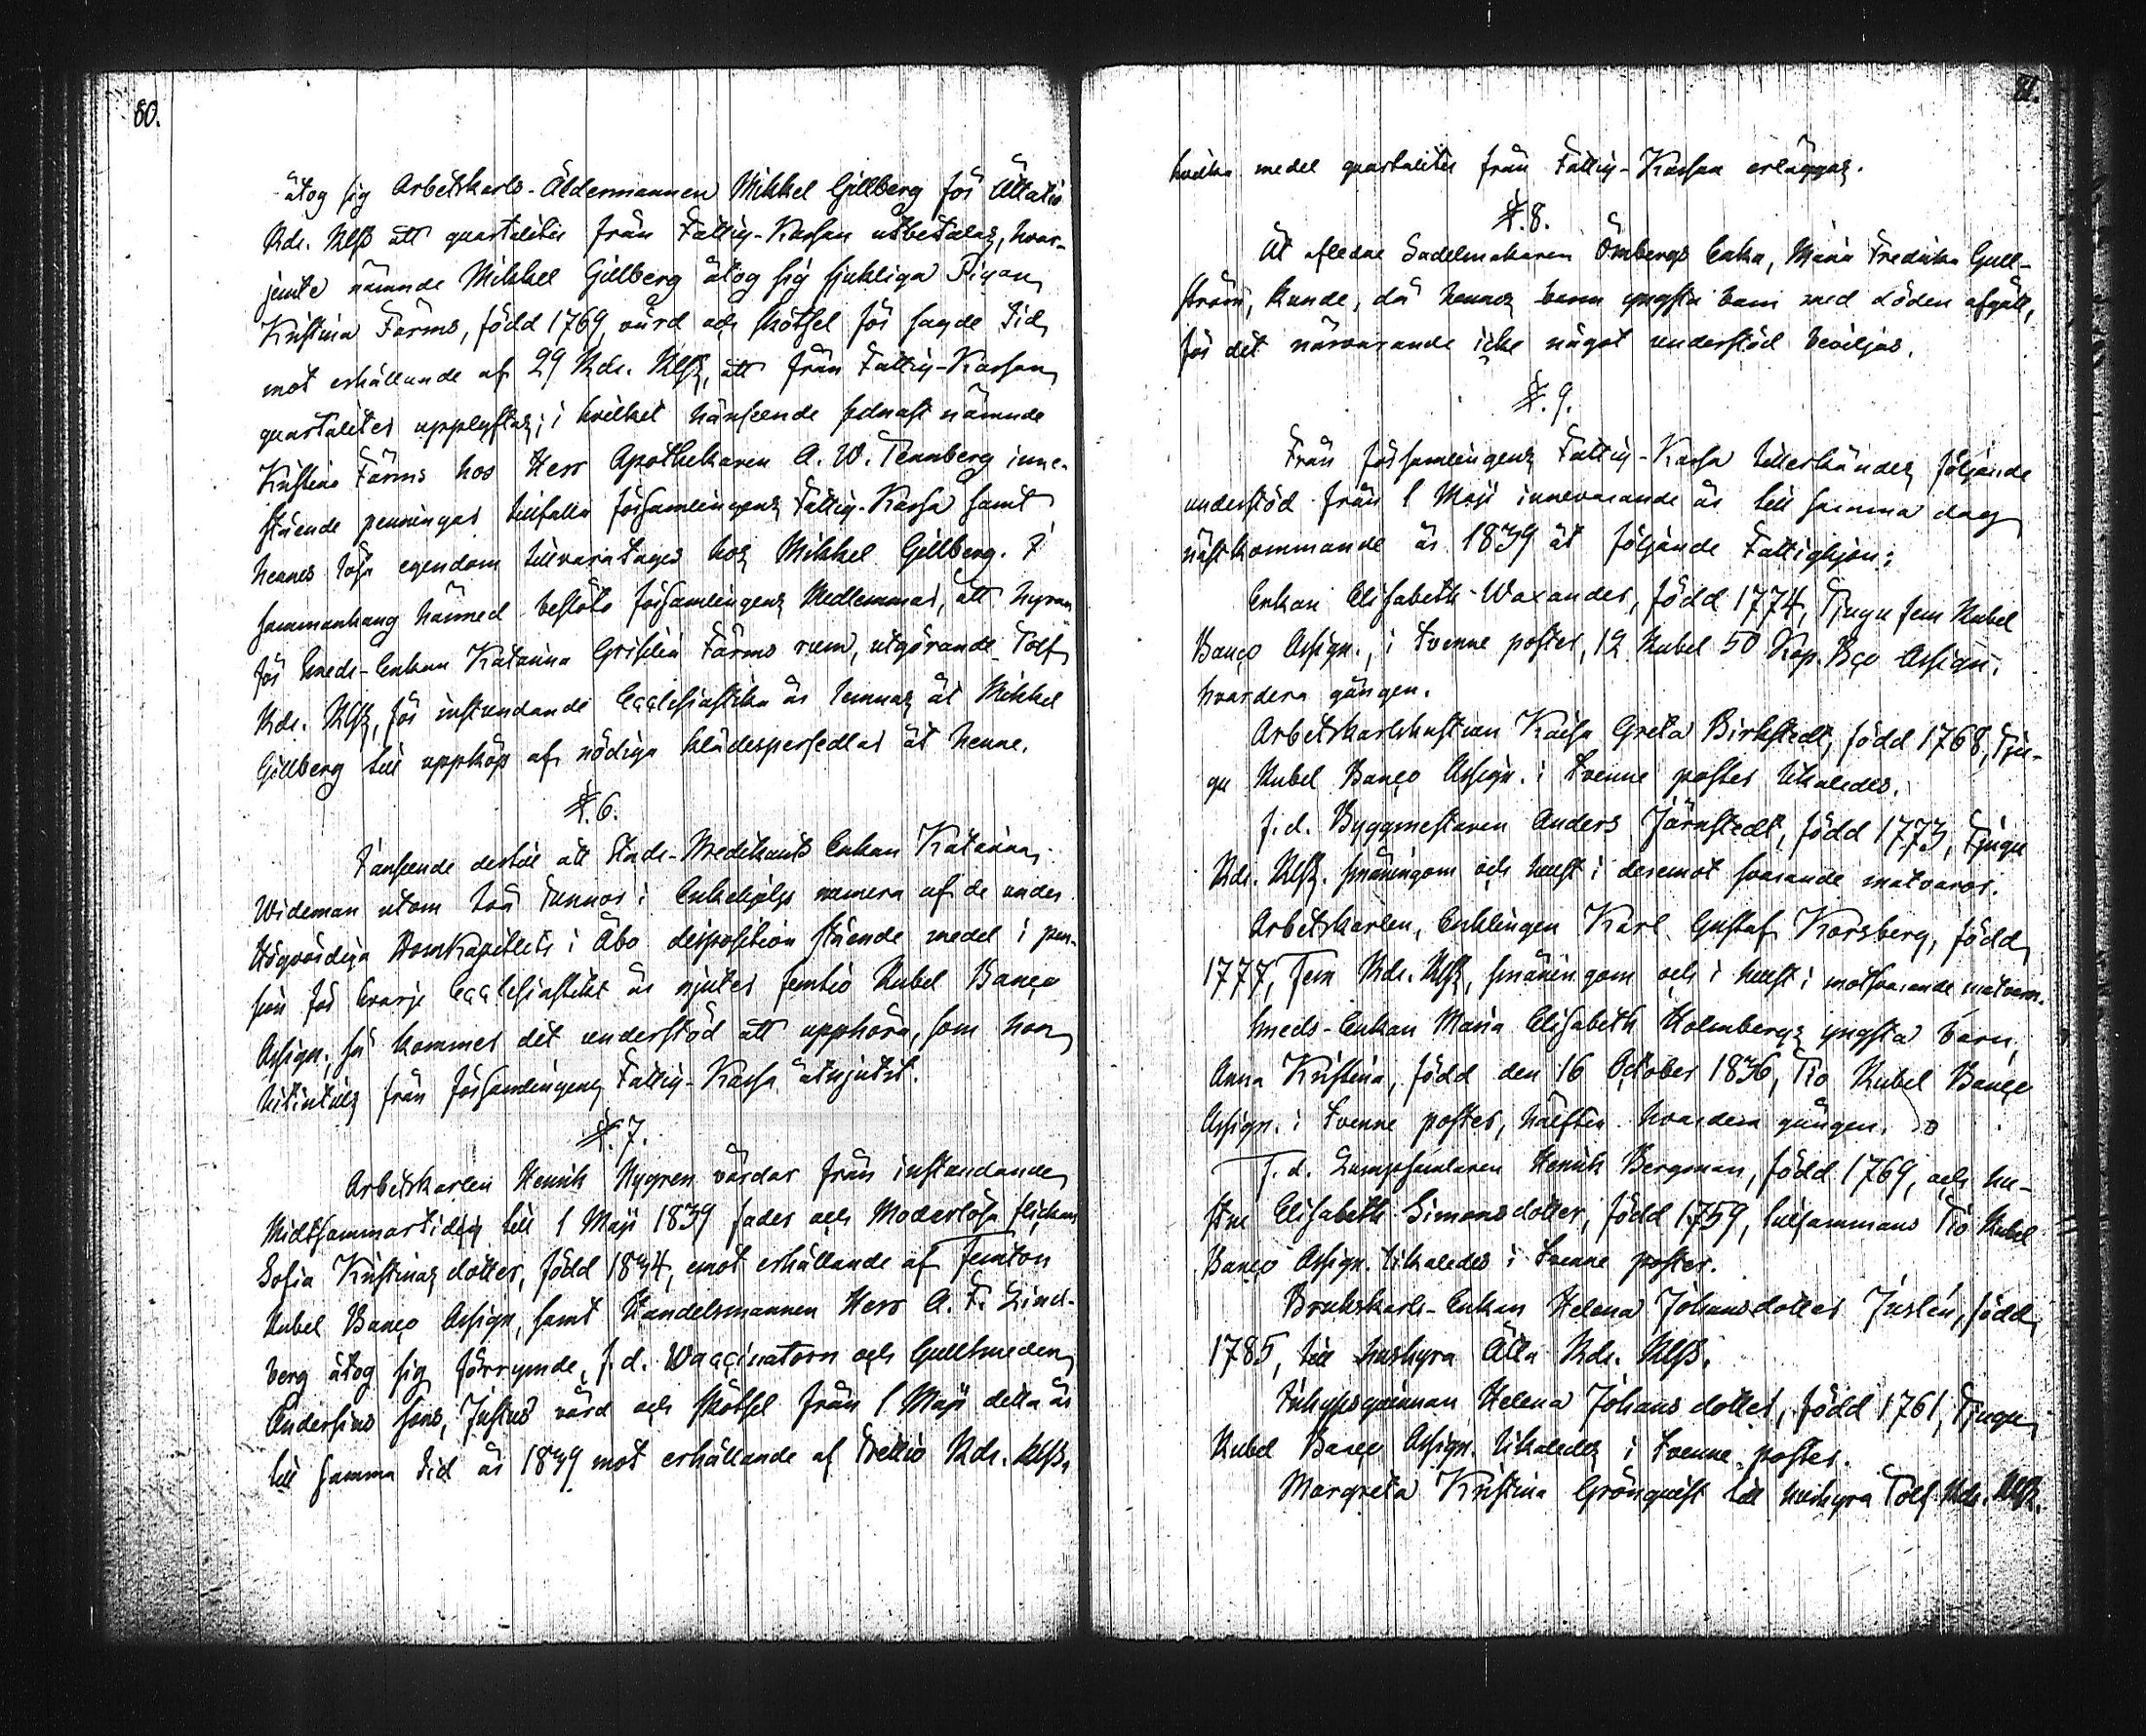 80.
åtog sig Arbetskarls-Åldermannen Mikkel Gillberg för Åttatio
Rdr. Rgß att quartaliter från Fattig-Kassan utbetalas, hvar-
jemte nämnde Mikkel Gillberg åtog sig sjukliga Pigan
Kristina Färms, född 1769, vård och skötsel för sagde tid
mot erhållande af 29 Rdr. Rgß, att från Fattig-Kassan
quartaliter upplyftas; i hvilket hänseende sednast nämnde
Kristina Färms hos Herr Apothekaren A. W. Tennberg inne-
stående penningar tillfalla församlingens Fattig-Kassa samt
hennes lösa egendom tillvaratages hos Mikkel Gillberg. I
sammanhang härmed beslöto församlingens Medlemmar, att hyran
för Smeds-Enkan Katarina Grislia Färms rum, utgörande Tolf
Rdr. Rgß, för instundande Ecclesiastika år lemnas åt Mikkel
Gillberg till uppköp af nödiga klädespersedlar åt henne.
§. 6.
I anseende dertill att Stads-Predikants Enkan Katarina
Wideman utom två Tunnor i Enkehjelp numera af de under
Högvördiga DomKapitlets i Åbo disposition stående medel i pen-
sion för hvarje Ecclesiastikt år njuter femtio Rubel Banco
Assign., så kommer det understöd att upphöra, som hon
hitintills från församlingens Fattig-Kassa åtnjutit.
§. 7.
Arbetskarlen Henrik Nygren vårdar från instundande
Midsommarstiden till 1 Maji 1839 fader och Moderlösa flickan
Sofia Kristinas dotter, född 1834, emot erhållande af Femton
Rubel Banco Assign, samt Handelsmannen Herr A. F. Lind-
berg åtog sig förrymde f. d. Waccinatorn och Gullsmeden
Andersins sons, Justus vård och skötsel från 1 Maji detta år
till samma tid år 1839 mot erhållande af Trettio Rdr. Rgß,
81.
hvilka medel quartaliter från Fattig-Kassan erläggas.
§. 8.
Åt aflidne Sadelmakaren Örnbergs Enka, Maria Fredrika Gull-
ström, kunde, då hennes barn yngsta barn med döden afgått,
för det närvarande icke något understöd beviljas.
§. 9.
Från församlingens Fattig-Kassa tillerkändes följande
understöd från 1 Maji innevarande år till samma dag
nästkommande år 1839 åt följande Fattighjon:
Enkan Elisabeth Waxander, född 1774, Tjugu fem Rubel
Banco Assign., i tvenne poster, 12 Rubel 50 Kop. Bco Assign.
hvardera gången.
Arbetskarlshustrun Kaisa Greta Birkstedt, född 1768, Tju-
gu Rubel Banco Assign. i tvenne poster likaledes.
f. d. Byggmestaren Anders Järnstedt, född 1773, Tjugu
Rdr. Rgß. småningom och helst i deremot svarande matvaror.
Arbetskarlen, Enklingen Karl Gustaf Korsberg, född
1777, Fem Rdr. Rgß, småningom och i helst i motsvarande matvaror.
Smeds-Enkan Maria Elisabeth Holmbergs yngsta barn,
Anna Kristina, född den 16 October 1836, Tio Rubel Banco
Assign. i tvenne poster, hälften hvardera gången.
f. d. Lumpsamlaren Henrik Bergman, född 1769, och hu-
strun Elisabeth Simonsdotter, född 1759, tillsammans Tio Rubel
Banco Assign. likaledes i tvenne poster.
Brukskarls-Enkan Helena Johansdotter Juslin, född
1785, till hushyra Åtta Rdr. Rgß.
Inhysesqvinnan Helena Johansdotter, född 1761, Tjugu
Rubel Banco Assign. likaledes i tvenne poster.
Margreta Kristina Grönqvist till hushyra Tolf Rdr. Rgß.